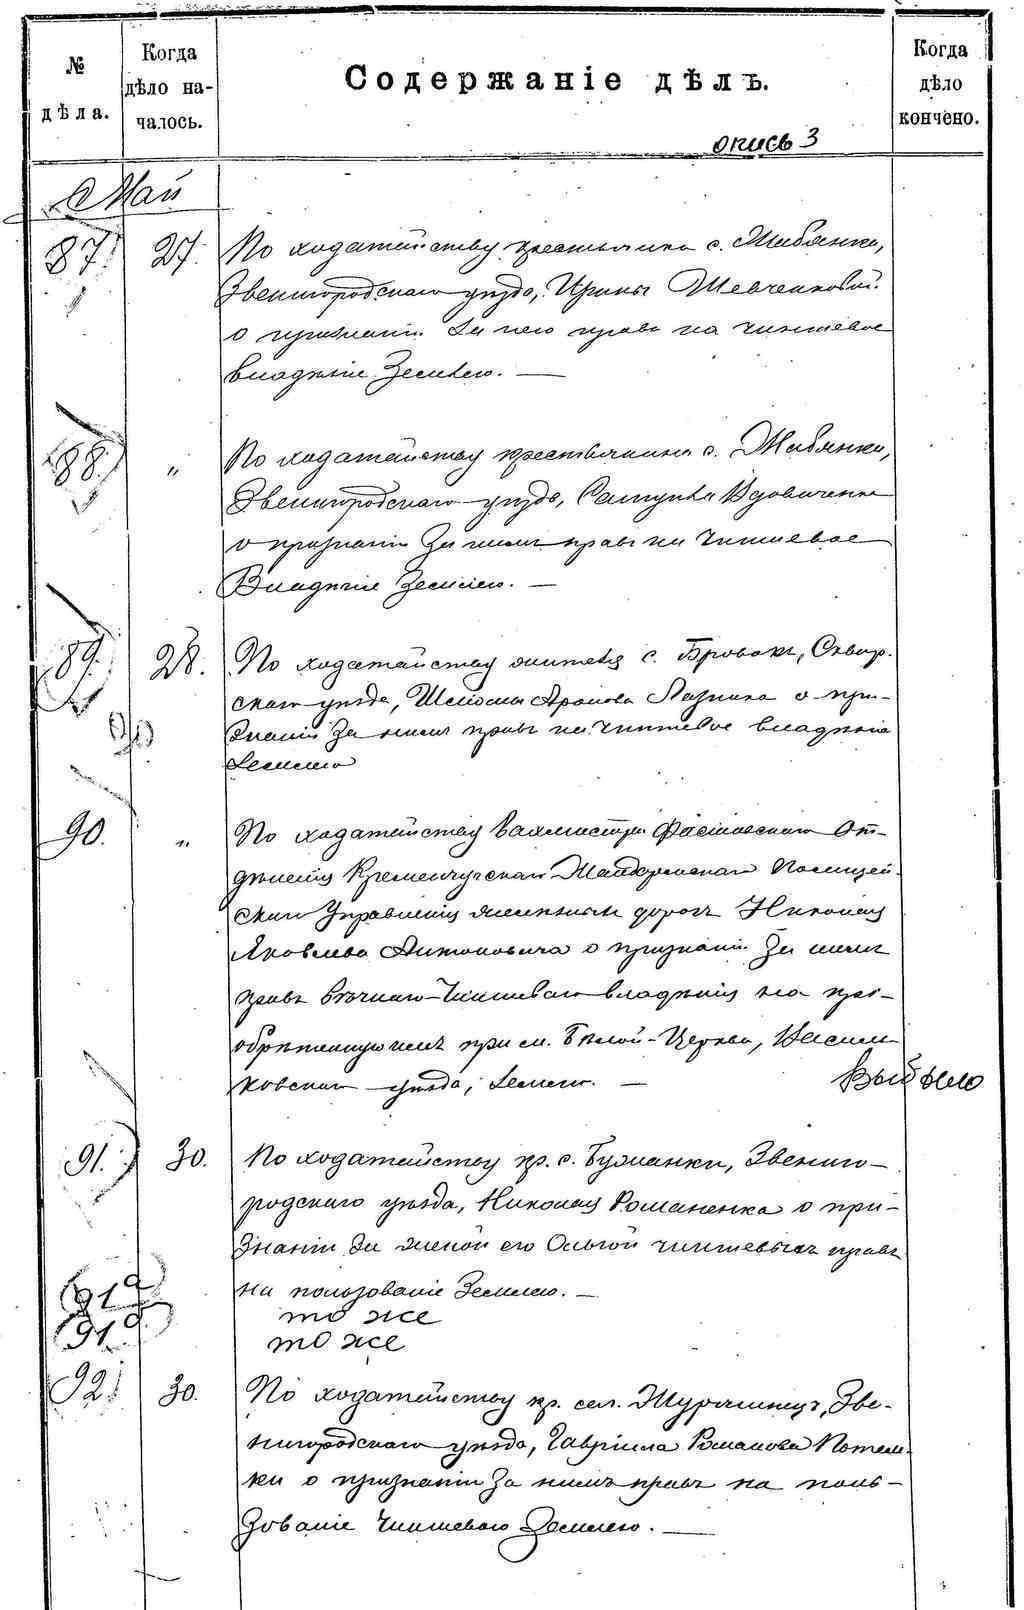 № дѣла.
Когда дѣло началось.
Содержаніе дѣлъ.
Когда дѣло кончено.
опись 3
Май
87. 27. По ходатайству крестьянки с. Жабянки,
Звенигородскаго уѣзда, Ирины Шевченковой
о признаніи за нею права на чиншевое
владѣніе землею. —
88. " По ходатайству крестьянина с. Жабянки,
Звенигородскаго уѣзда, Вдовиченка
о признаніи за нимъ правъ на чиншевое
владѣніе землею. —
89. 28. По ходатайству жителя с. Бровокъ, Сквир-
скаго уѣзда, Шлiомы Аронова Лазника о при-
знаніи за нимъ правъ на чиншевое владѣніе
землею
90. " По ходатайству вахмистра Фастовскаго От-
дѣленія Кременчугскаго Жандармскаго Полицей-
скаго Управленія желѣзныхъ дорогъ Николая
Яковлева Антоновича о признаніи за нимъ
правъ вѣчнаго-чиншеваго владѣнія на прі-
обрѣтенную имъ при м. Бѣлой-Церкви, Василь-
ковскаго уѣзда, землю. —
выбыло
91. 30. По ходатайству кр. с. Бужанки, Звениго-
родскаго уѣзда, Николая Романенка о при-
знаніи за женой его Ольгой чиншевыхъ правъ
на пользованіе землею. —
91а то же
91 то же
92 30. По ходатайству кр. сел. Журжинецъ, Зве-
нигородскаго уѣзда, Гавріила Романова
о признаніи за нимъ правъ на поль-
зованіе чиншевою землею. —